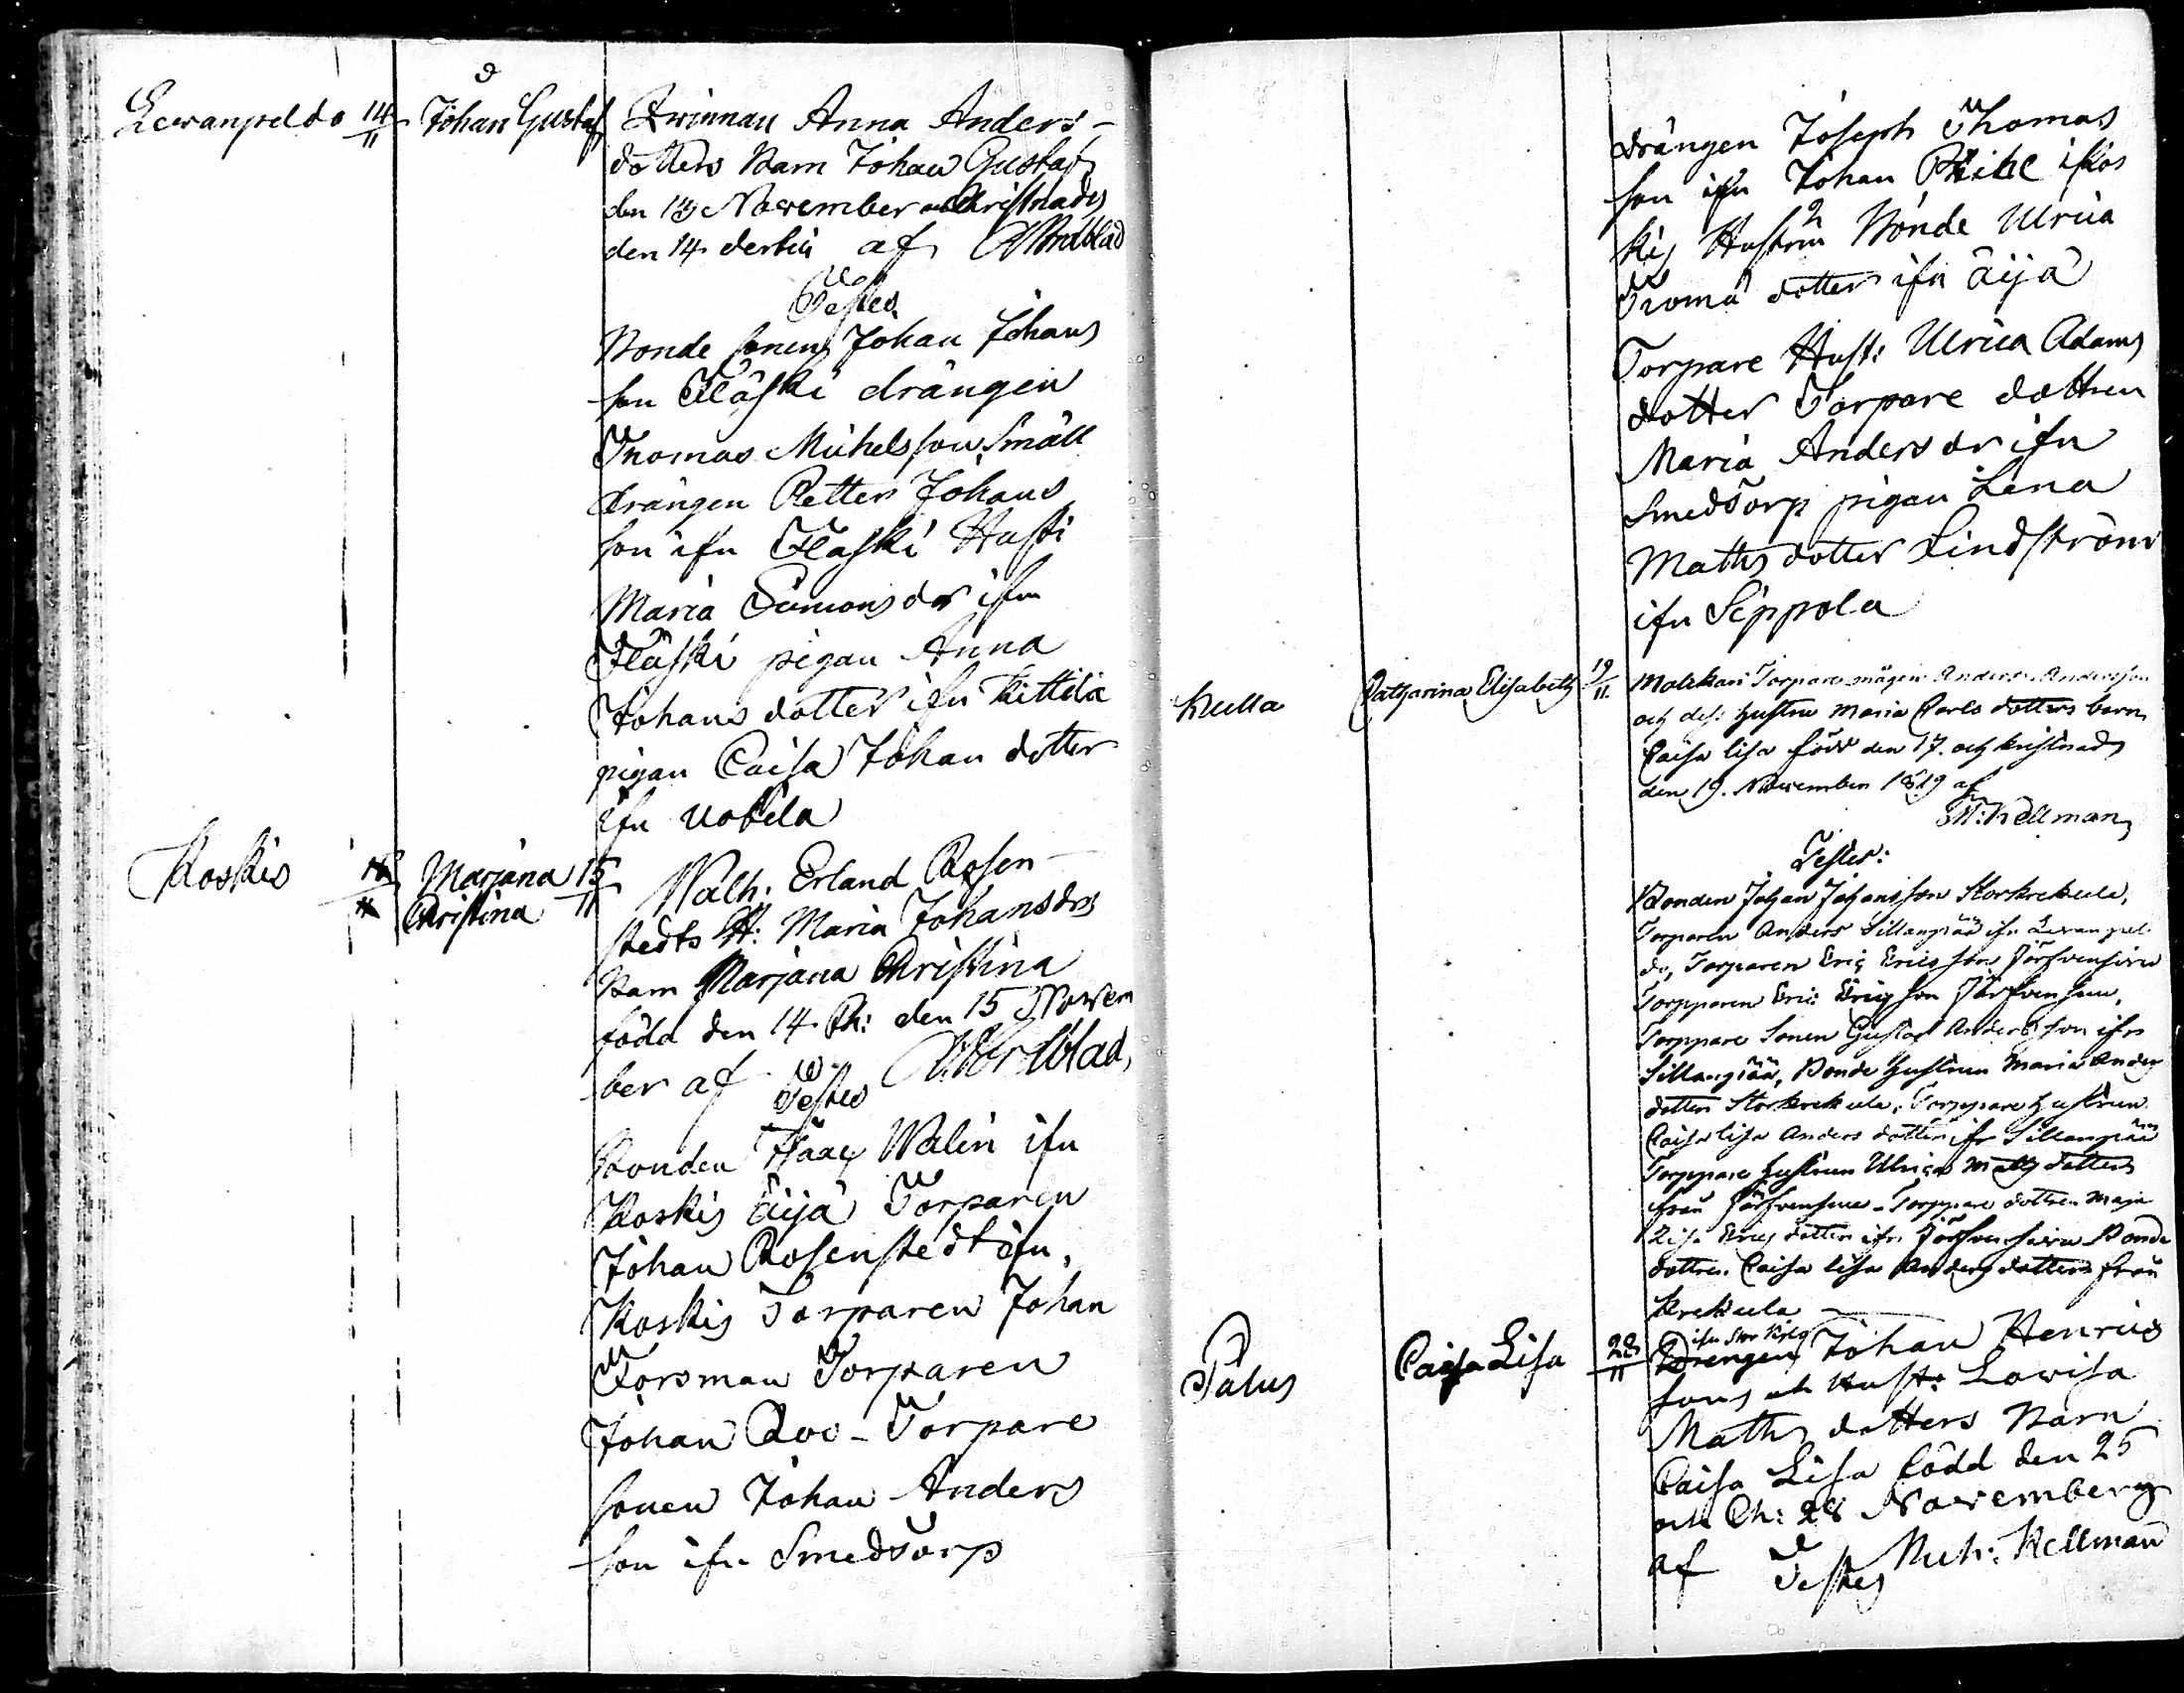 Lewanpeldo 14/11 Johan Gustaf Qwinnan Anna Anders-
dotters Barn Johan Gustaf
den 13 November Christnades
den 14 derbei af
Testes
Bonde sonen Johan Johans
son Fläski drängen
Thomas Michelsson Småll
drängen Petter Johans
son ifn Flaski Hust:
Maria Simons dr ifn
Fläski pigan Anna
Johans dotter ifn Kittilä
pigan Caisa Johan dotter
ifn Uotila
Koskis 15/11 Marjana 15/11 Walb: Erland Rosen-
Christina
stedts H: Maria Johansdrs
Barn Marjana Christina
född den 14 Ch: den 15 Novem
ber af
Testes
Bonden Isaac Walin ifn
Koskis äijä Torparen
Johan Rosenstedt ifn
Koskis Torparen Johan
Forsman Torparen
Johan Roo - Torpare
sonen Johan Anders
son ifn Smedtorp
drängen Joseph Thomas
son ifn Johan ifkos
kis Hustru Bonde Ulrica
Thoma dotter ifn äijä
Torpare Hust: Ulrica Adams
dotter Torpare dottren
Maria Anders dr ifn
Smedtorp pigan Lena
Matts dotter Lindström
ifn Seppola
Kulla Catharina Elisabeth 19/11 Matikari Torparemågen Anders Andersson
och dess hustru Maria Carls dotters barn
Caisa Lisa född den 17. och kristnad
den 19. November 1819 af
M: Kellman
Testes:
Bonden Johan Johansson Storkrekula,
Torparen Anders Sillanpää ifn Lewanpel
do, Torparen Eric Ericsson Järfvensivu
Torpparen Eric Ericsson Järfvensivu,
Torppare Sonen Gustaf Andersson ifn
Sillanpää, Bonde hustrun Maria Anders
dotter Storkrekula, Torppare hustrun
Caisa Lisa Anders dotter ifn Sillanpää
Torppare hustrun Ulrica Matts dotter
från Järfvensivu - Torppare dottren Maja
Lisa Erics dotter ifn Järfvensivu Bonde
dottren Caisa Lisa Anders dotter från
Krekula
ifn Stor Krlg
Palus Caisa Lisa 28/11 Drengen Johan Henrics
sons och Hust: Lowisa
Matts dotters Barn
Caisa Lisa född den 25
och Ch: 28 Novembery
af Mich: Kellman
Testes